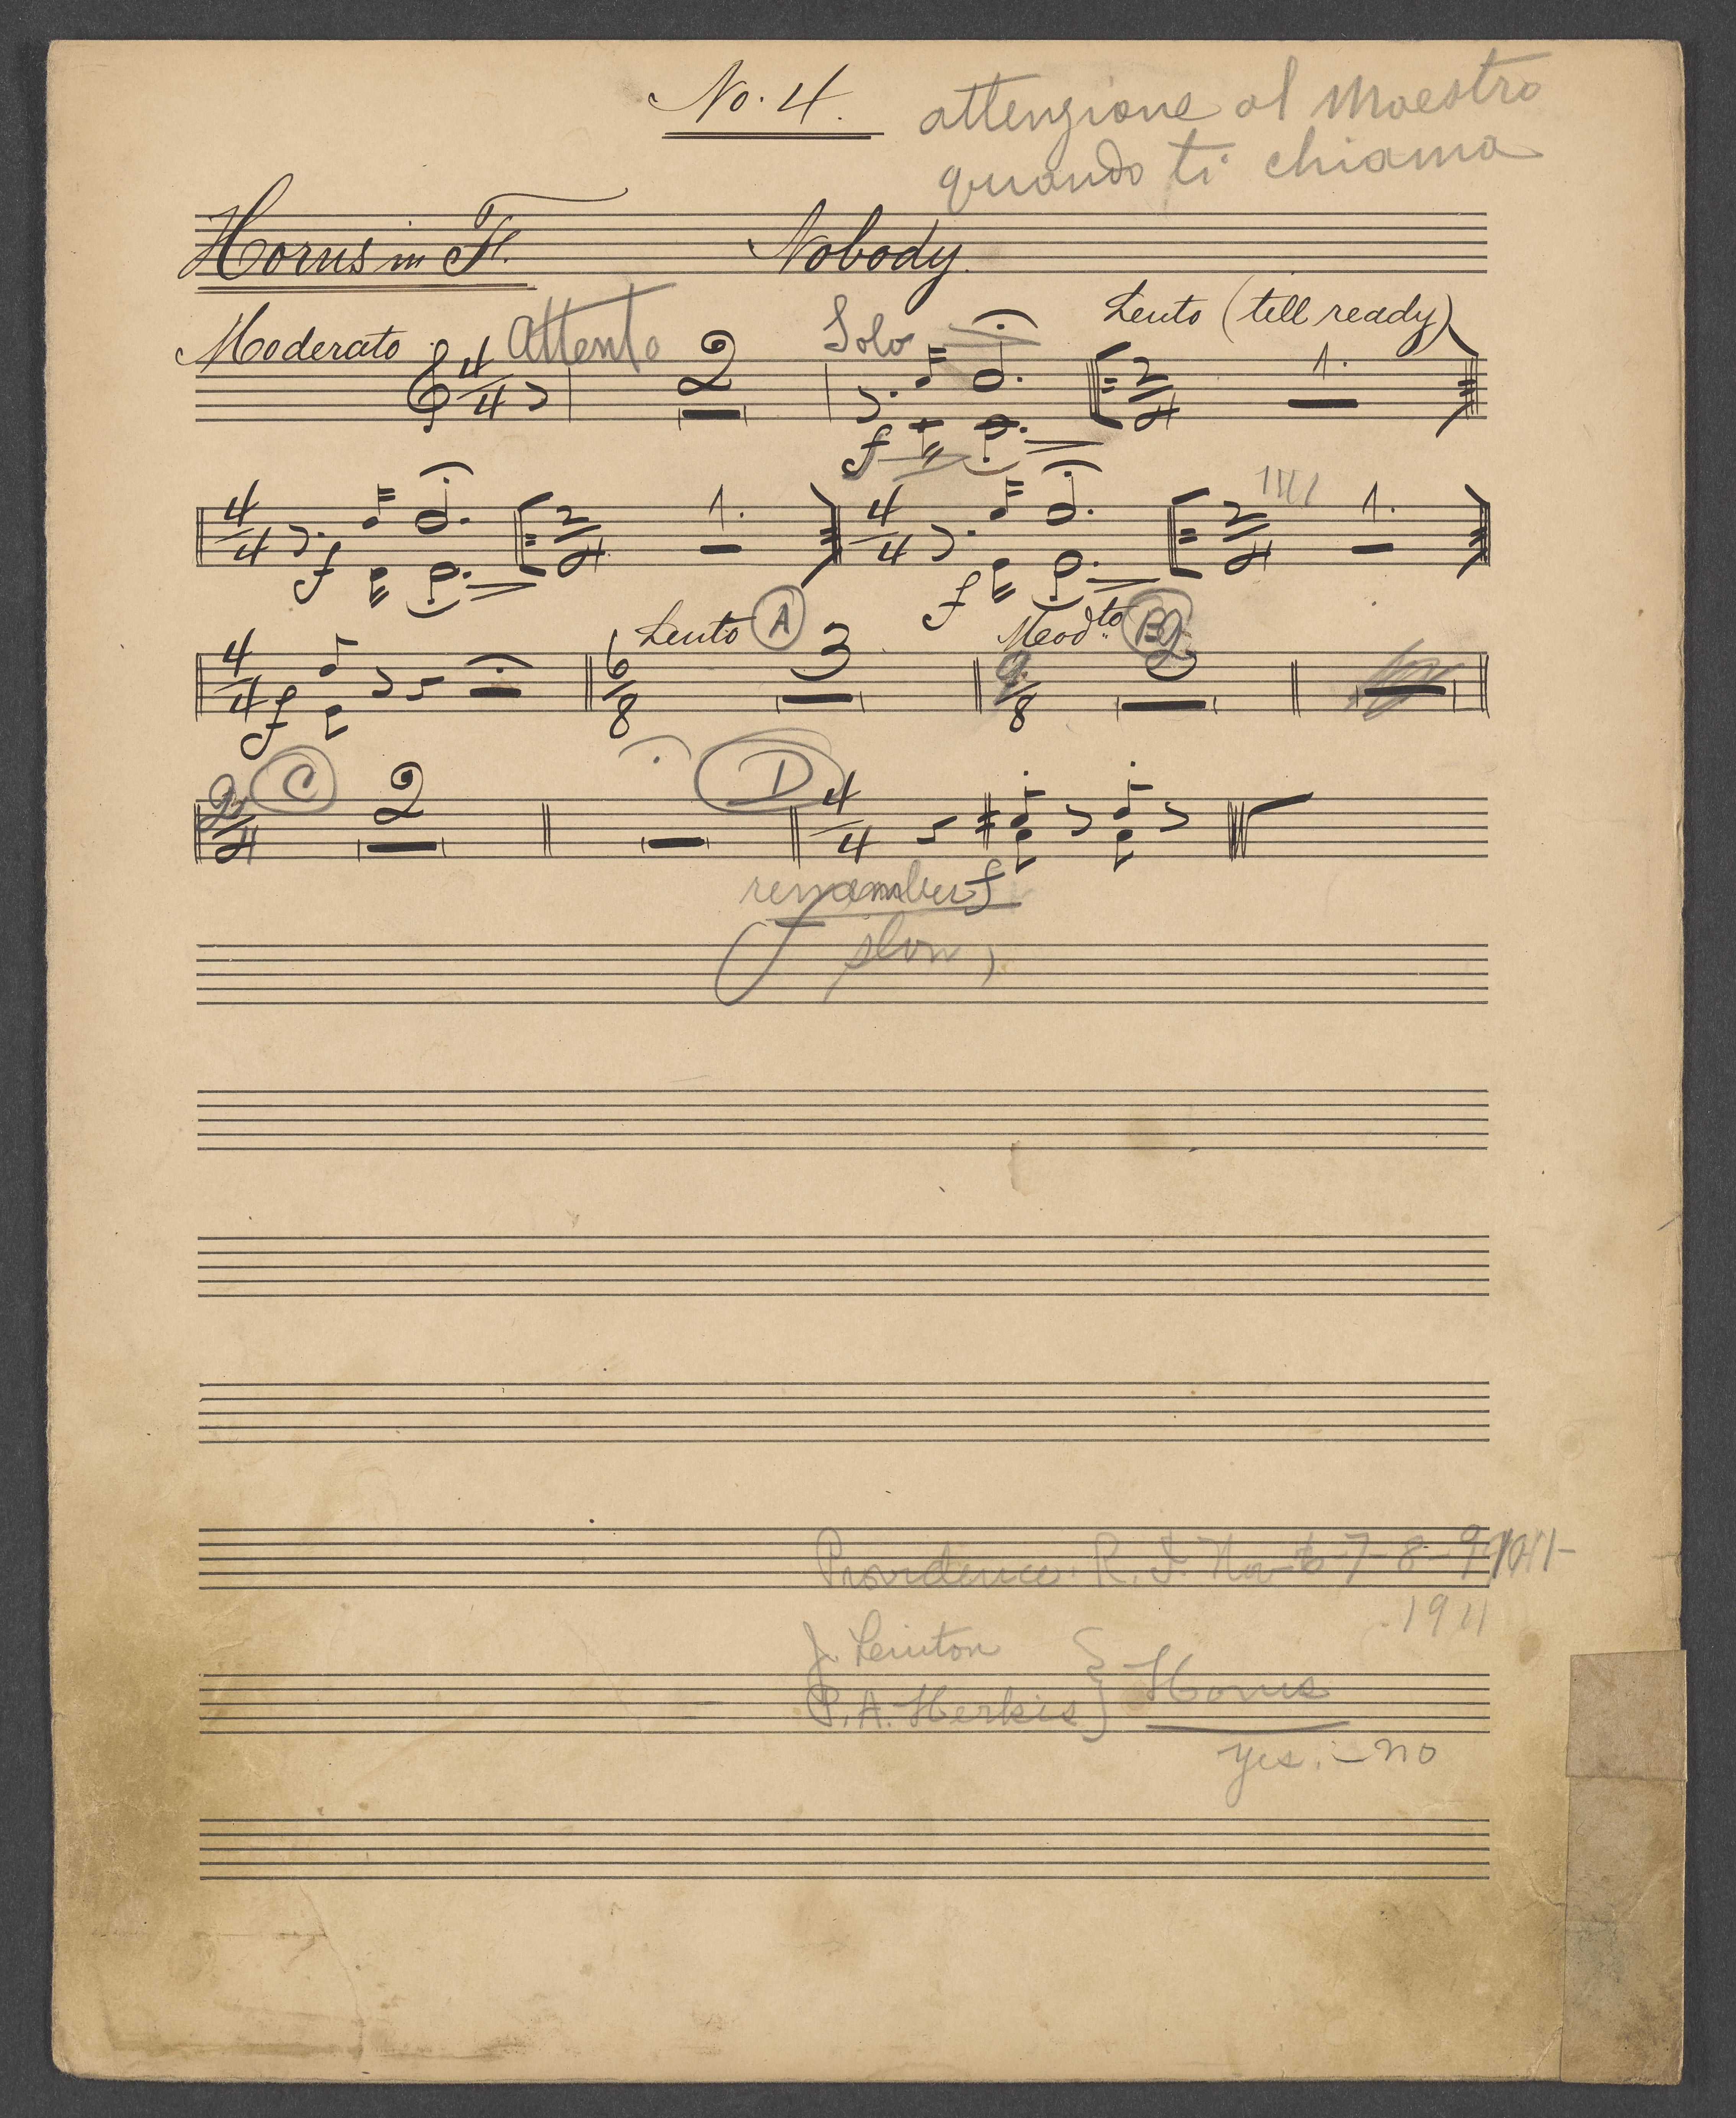 No. 4.
attenzione al Maestro
quando ti chiama
Horns in F. Nobody.
Moderato Attento 2 Solo Lento (till ready)
4/4 f 2/4 1.
4/4 f 2/4 1. 4/4 f 2/4 1.
Lento A 3 Modto B 2
4/4 f 6/8 9/8
2/4 C 2 D 4/4
remember f
slow
Providence. R. I. Nov 6-7-8-9-10-11-
1911
J. Leinton
P. A. Herkis } Horns
yes. - no